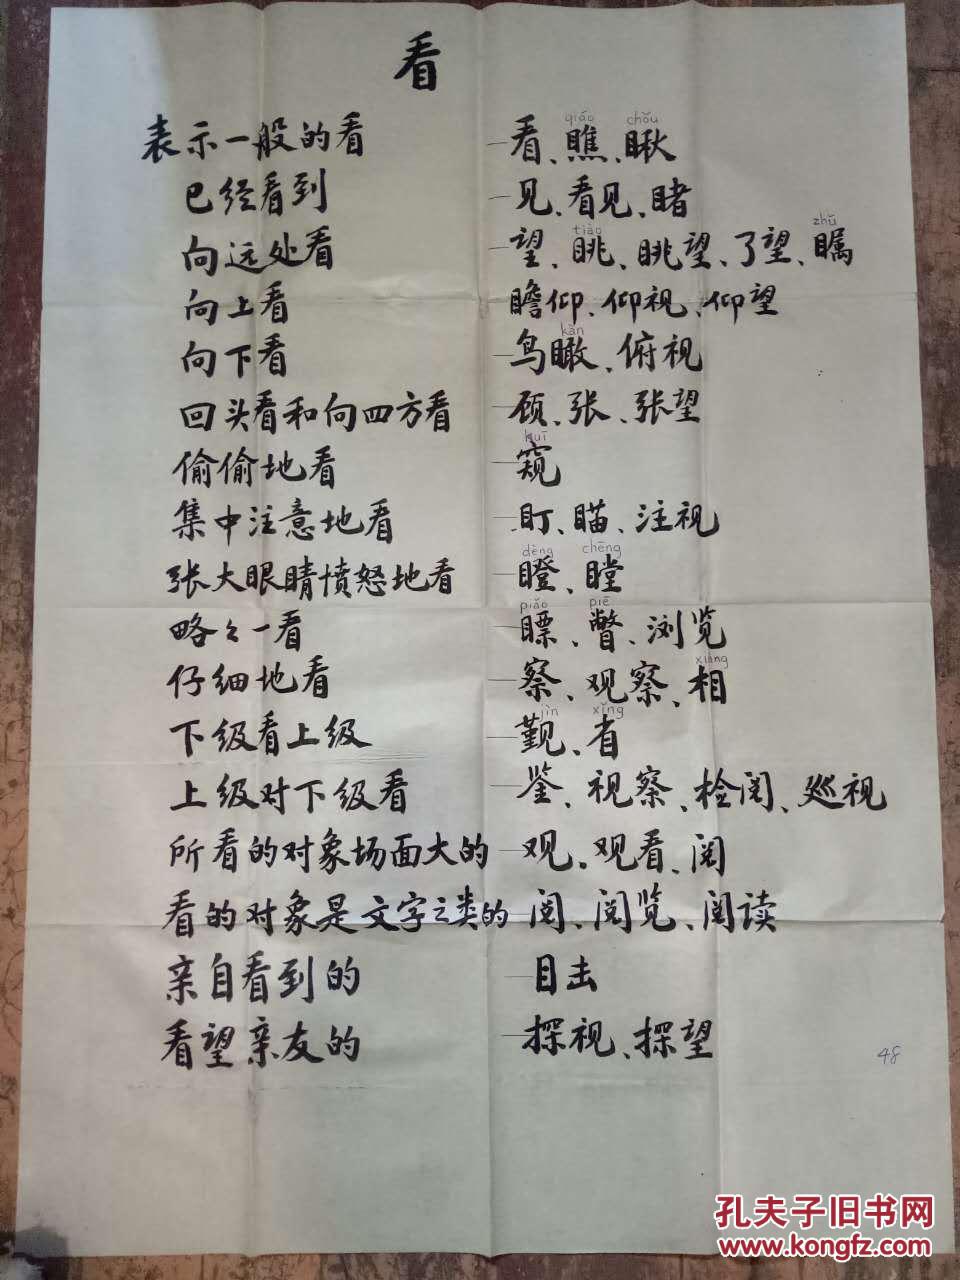 看
qiáo chǒu
表示一般的看 — 看、瞧、瞅
已经看到 — 见、看见、睹
tiào zhǔ
向远处看 — 望、眺、眺望、了望、瞩
向上看 瞻仰、仰视、仰望
kàn
向下看 — 鸟瞰、俯视
回头看和向四方看 — 顾、张、张望
kuī
偷偷地看 — 窥
集中注意地看 盯、瞄、注视
dèng chēng
张大眼睛愤怒地看 — 瞪、瞠
piǎo piē
略々一看 — 瞟、瞥、浏览
xiàng
仔细地看 — 察、观察、相
jìn xǐng
下级看上级 — 觐、省
上级对下级看 — 鉴、视察、检阅、巡视
所看的对象场面大的 — 观、观看、阅
看的对象是文字之类的 阅、阅览、阅读
亲自看到的 — 目击
看望亲友的 — 探视、探望
48
孔夫子旧书网
www.kongfz.com